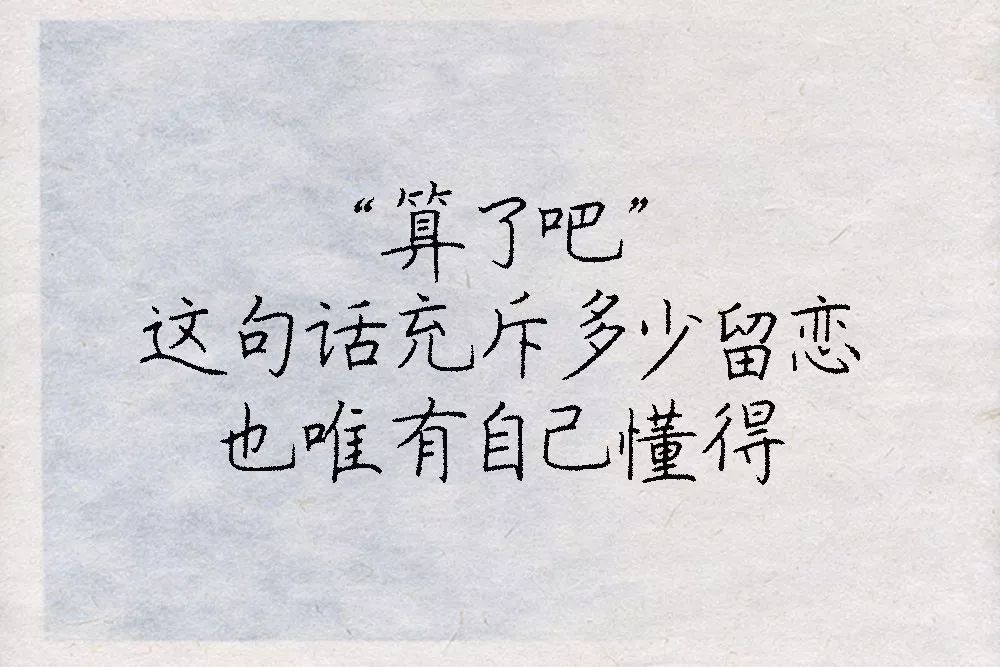 “算了吧”
这句话充斥多少留恋
也唯有自己懂得